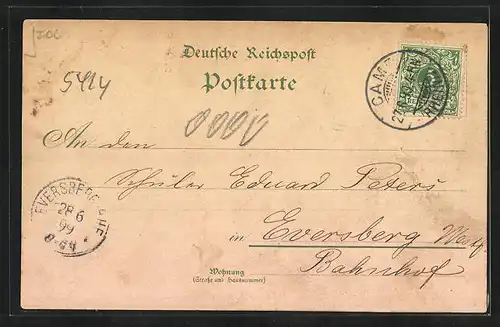 Deutsche Reichspost
Postkarte
5414
An den
Schüler Eduard Peters
in Eversberg Westf.
Bahnhof
Wohnung
(Straße und Hausnummer)
EVERSBERG
28 6
99
CAMP
RHEIN